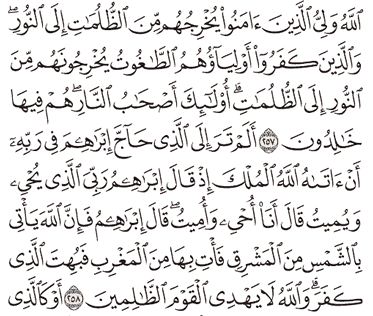 ٱللَّهُ وَلِىُّ ٱلَّذِينَ ءَامَنُوا۟ يُخْرِجُهُم مِّنَ ٱلظُّلُمَٰتِ إِلَى ٱلنُّورِ ۖ
وَٱلَّذِينَ كَفَرُوٓا۟ أَوْلِيَآؤُهُمُ ٱلطَّٰغُوتُ يُخْرِجُونَهُم مِّنَ
ٱلنُّورِ إِلَى ٱلظُّلُمَٰتِ ۗ أُو۟لَٰٓئِكَ أَصْحَٰبُ ٱلنَّارِ ۖ هُمْ فِيهَا
خَٰلِدُونَ ٢٥٧ أَلَمْ تَرَ إِلَى ٱلَّذِى حَآجَّ إِبْرَٰهِـۧمَ فِى رَبِّهِۦٓ
أَنْ ءَاتَىٰهُ ٱللَّهُ ٱلْمُلْكَ إِذْ قَالَ إِبْرَٰهِـۧمُ رَبِّىَ ٱلَّذِى يُحْىِۦ
وَيُمِيتُ قَالَ أَنَا۠ أُحْىِۦ وَأُمِيتُ ۖ قَالَ إِبْرَٰهِـۧمُ فَإِنَّ ٱللَّهَ يَأْتِى
بِٱلشَّمْسِ مِنَ ٱلْمَشْرِقِ فَأْتِ بِهَا مِنَ ٱلْمَغْرِبِ فَبُهِتَ ٱلَّذِى
كَفَرَ ۗ وَٱللَّهُ لَا يَهْدِى ٱلْقَوْمَ ٱلظَّٰلِمِينَ ٢٥٨ أَوْ كَٱلَّذِى